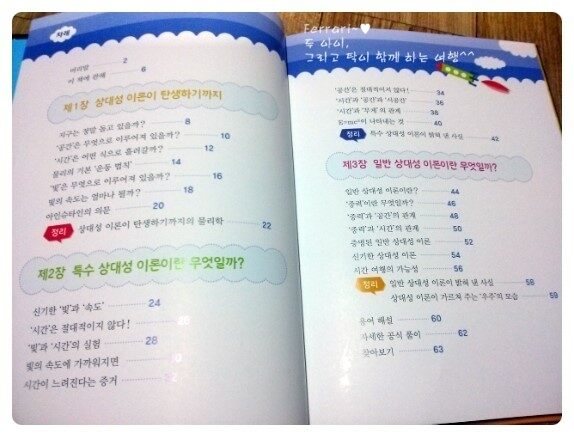 차례
머리말 2
이 책에 관해 6
제1장 상대성 이론이 탄생하기까지
지구는 정말 돌고 있을까? 8
'공간'은 무엇으로 이루어져 있을까? 10
'시간'은 어떤 식으로 흘러갈까? 12
물리의 기본 '운동 법칙' 14
'빛'은 무엇으로 이루어져 있을까? 16
빛의 속도는 얼마나 될까? 18
아인슈타인의 의문 20
정리 상대성 이론이 탄생하기까지의 물리학 22
제2장 특수 상대성 이론이란 무엇일까?
신기한 '빛'과 '속도' 24
'시간'은 절대적이지 않다! 26
'빛'과 '시간'의 실험 28
빛의 속도에 가까워지면 30
시간이 느려진다는 증거 32
Ferrari~♥
두 아이,
그리고 탁이 함께 하는 여행^^
'공간'은 절대적이지 않다! 34
'시간'과 '공간'과 '시공간' 36
'시간'과 '무게'의 관계 38
E=mc²이 나타내는 것 40
정리 특수 상대성 이론이 밝혀 낸 사실 42
제3장 일반 상대성 이론이란 무엇일까?
일반 상대성 이론이란? 44
'중력'이란 무엇일까? 46
'중력'과 '공간'의 관계 48
'중력'과 '시간'의 관계 50
증명된 일반 상대성 이론 52
신기한 상대성 이론 54
시간 여행의 가능성 56
정리 일반 상대성 이론이 밝혀 낸 사실 58
상대성 이론이 가르쳐 주는 '우주'의 모습 59
용어 해설 60
자세한 공식 풀이 62
찾아보기 63